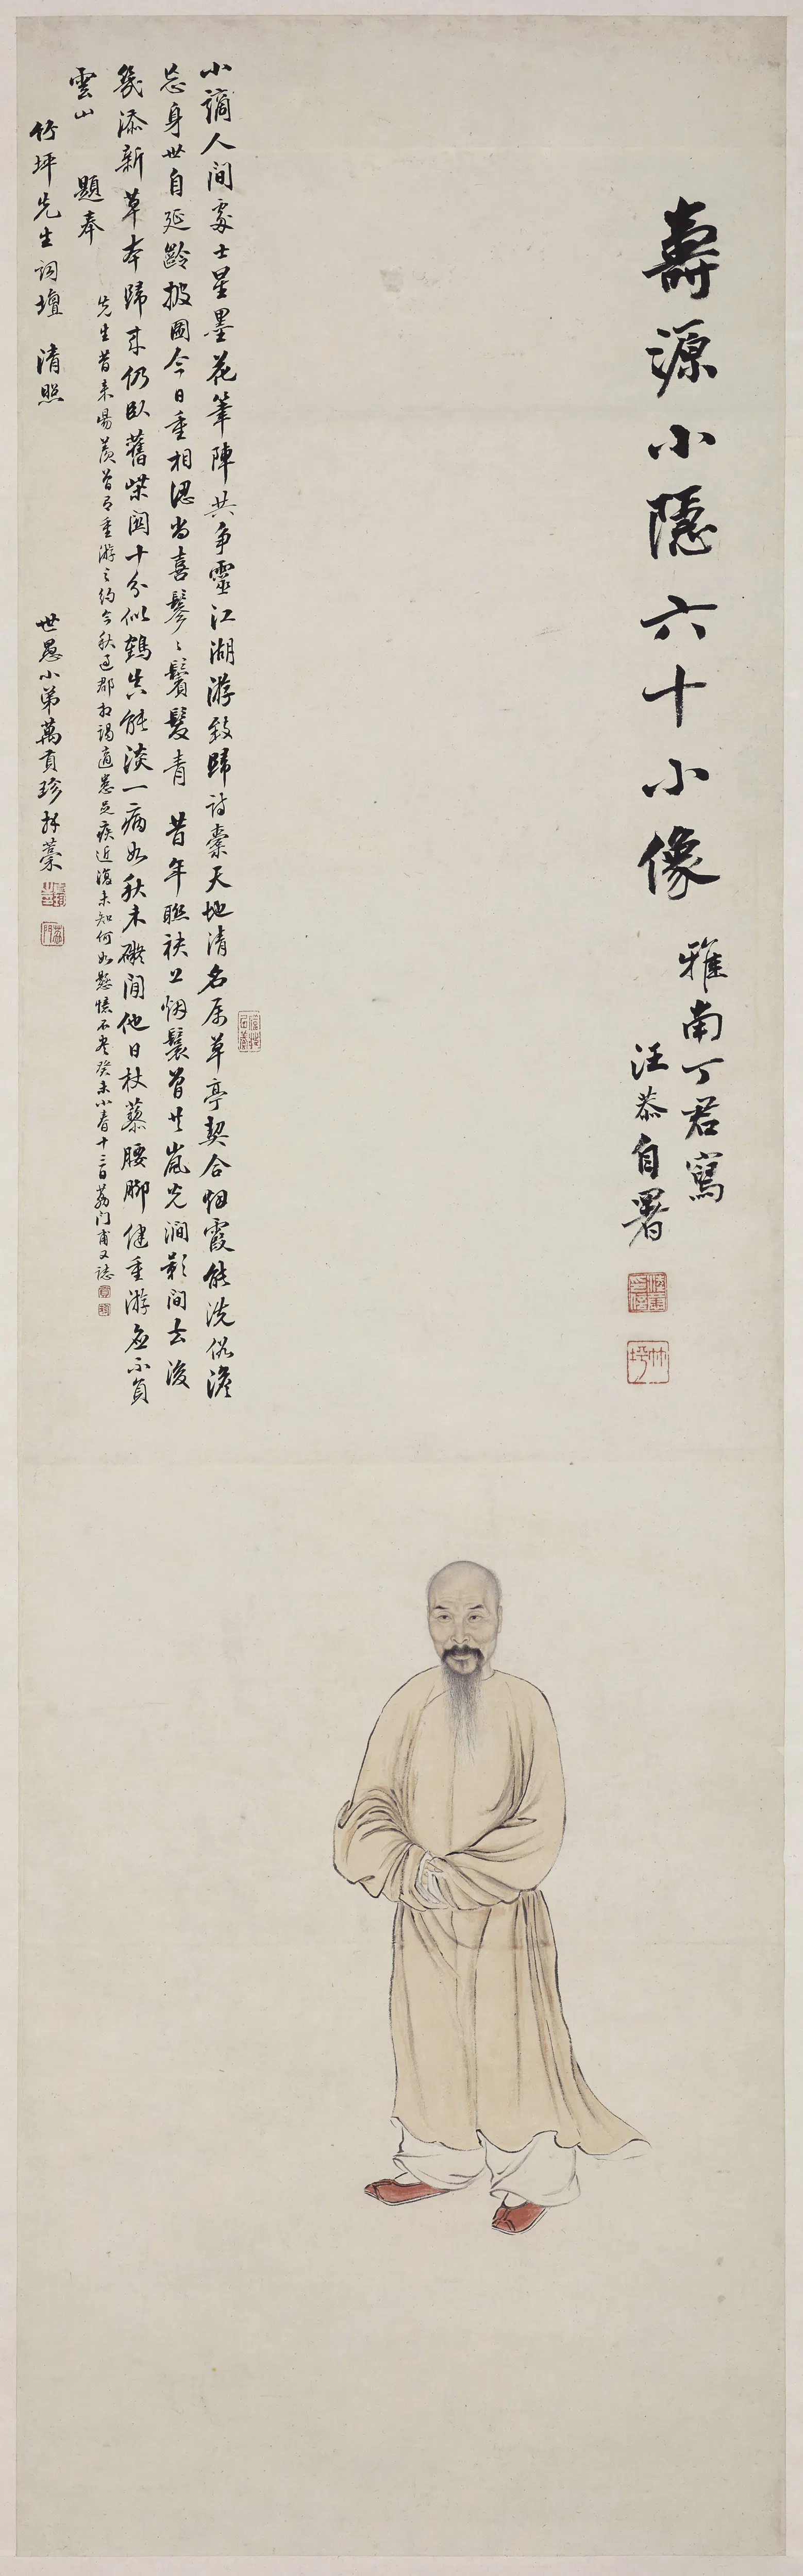 壽源小隱六十小像
雅南丁君寫
汪恭自署
竹坪
小謫人間處士星墨花筆陣共爭靈江湖游致歸詩橐天地清名屬草亭契合烟霞能洗俗澹
忘身世自延齡披圖今日重相認尚喜鬖〻鬢髮青 昔年聯袂上烟鬟曾共嵐光澗影間去後
幾添新草本歸來仍臥舊柴關十分似鶴真能淡一病如秋未礙閒他日杖藜腰脚健重游應不負
雲山
題奉
先生昔來陽羨曾有重游之約今秋過郡相謁適患足疾近復未知何如懸憶不盡癸未小春十三日荔門甫又誌
竹坪先生詞壇 清照
世愚小弟萬貢珍拜藁